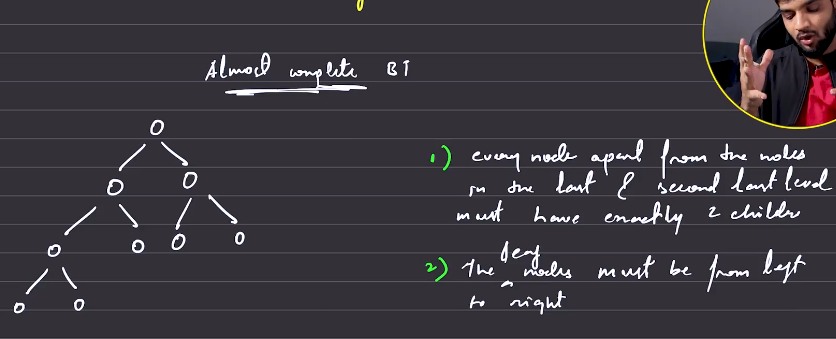 Almost complete BT
1) every node apart from the nodes
in the last & second last level
must have exactly 2 childre
2) The leaf nodes must be from left
to right